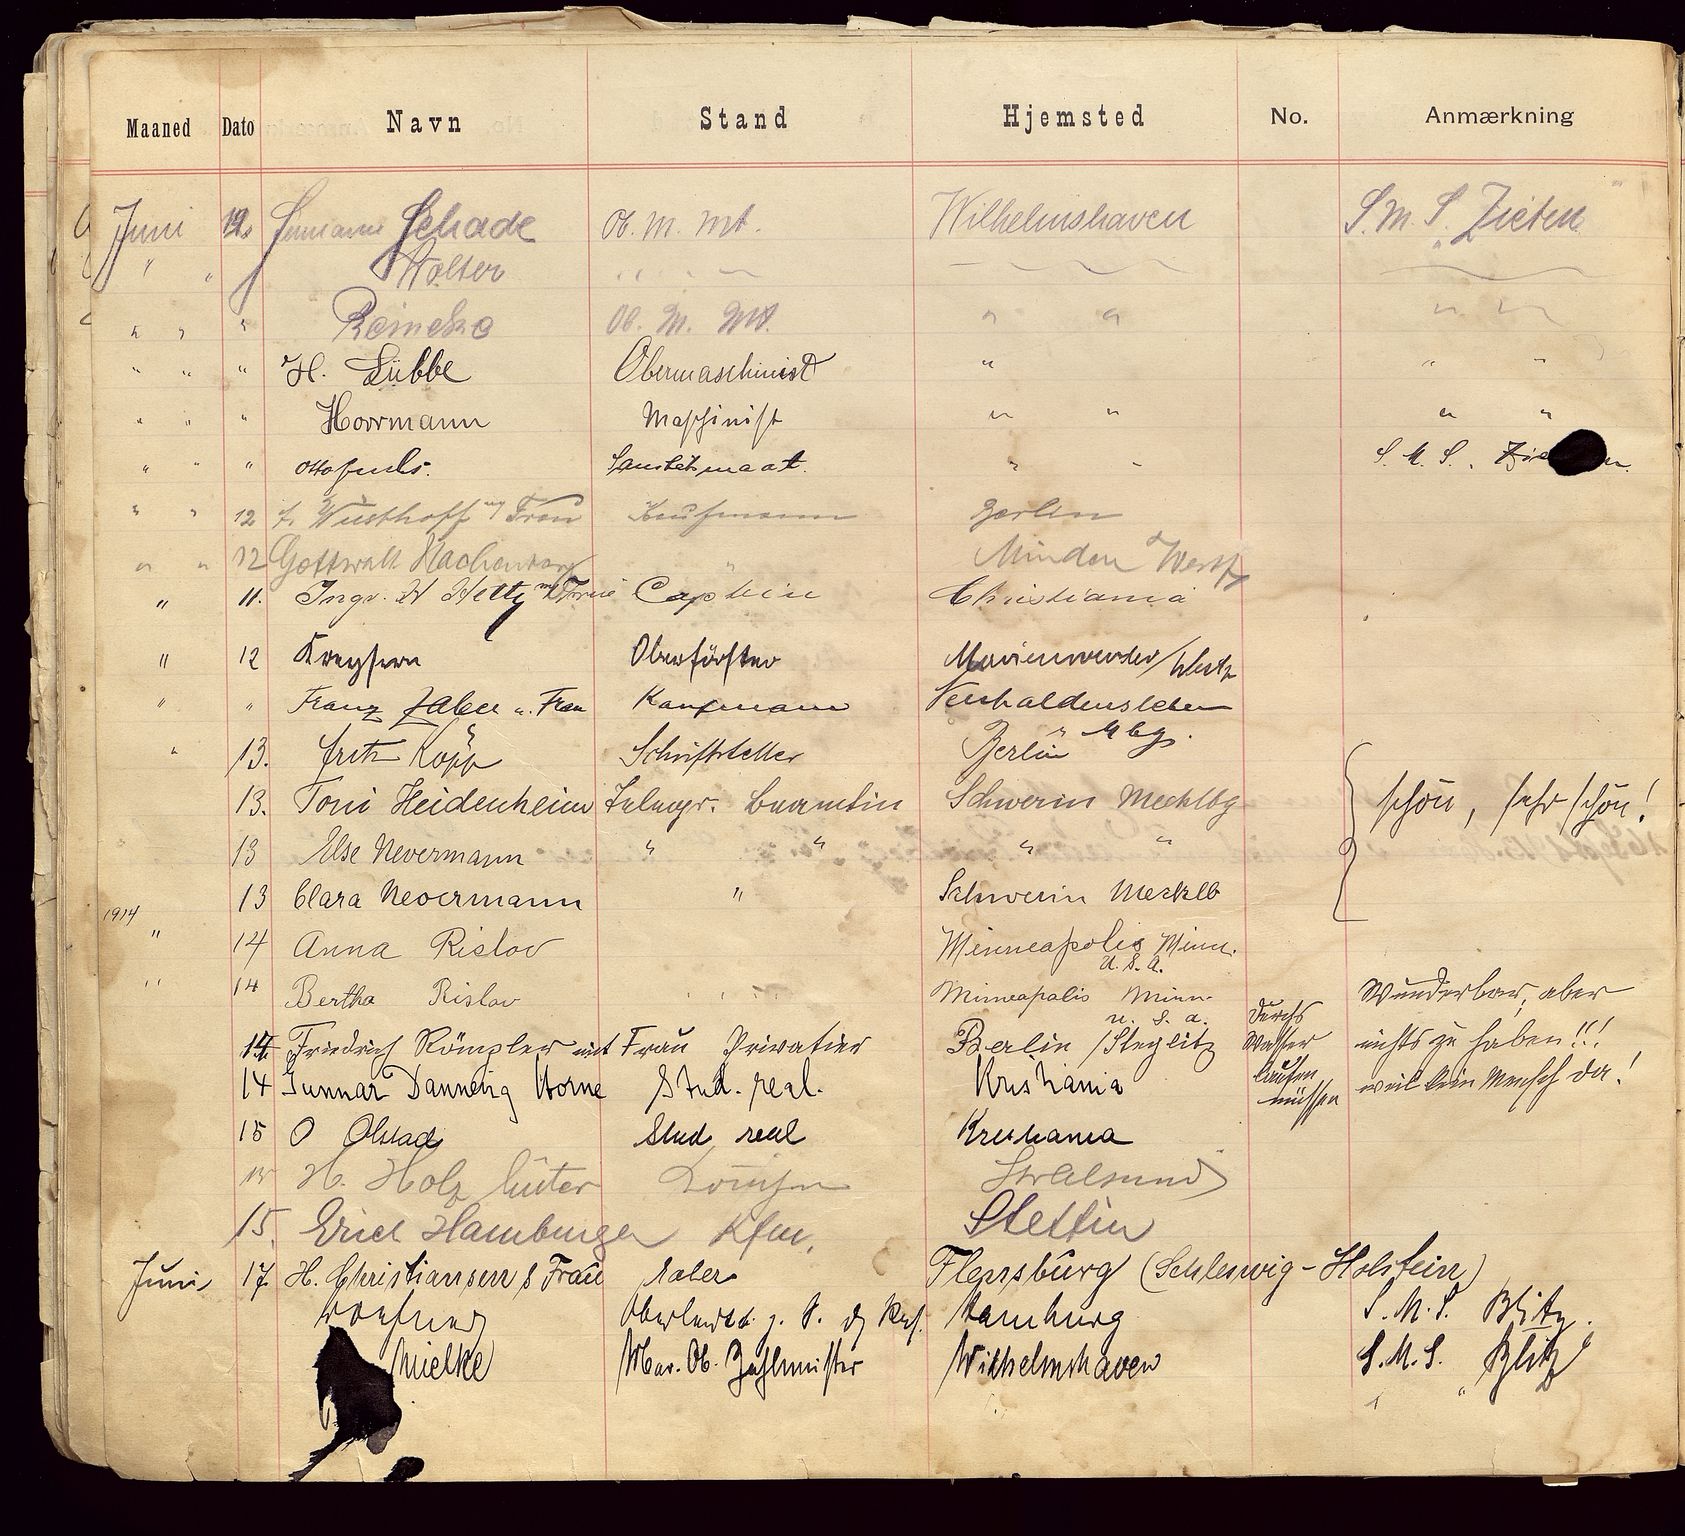 Maaned Dato Navn Stand Hjemsted No. Anmærkning
Juni 12. Schade Ob. M. Mt. Wilhelmshaven S. M. S. "Zieten"
" " Wolter " " "
" " " Reineke Ob. M. Mt. " " " "
" " " H. Lübbe Obermaschinist " " "
" " " Horrmann Maschinist " " " "
" " " Otto Sanitätsmaat. " " S. M. S.
" " 12 Wüsthoff Frau Kaufmann Berlin
" " 12 Gottwalt Hachenberg " Minden Westf
" 11. Ingv. H Hetty Captein Christiania
" 12 Oberförster Marienwerder/Westpr
" " Franz u. Frau Kaufmann Neuhaldensleben
" 13. Fritz Kopp Schriftsteller Berlin " Mbg.
13. Toni Heidenheim Telegr. Beamtin Schwerin Mecklbg schön, sehr schön!
13 Else Nevermann " " " "
1914
13 Clara Nevermann " Schwerin Mecklb
" 14 Anna Rislov Minneapolis Minn.
U. S. A.
" 14 Bertha Rislov Minneapolis Minn. Wunderbar, aber
U. S. A. Durchs
14 Friedrich Römpler mit Frau Privatier Berlin / Steglitz Wasser nichts zu haben!!!
laufen
14 Gunnar Dannevig Horne Stud. real. Kristiania müssen weil kein Mensch da!
15 O Olstad Stud real Kristiania
15 H. Holz Stralsund
15. Erich Hamburger Kfm. Stettin
Juni 17. H. Christiansen & Frau Flensburg (Schleswig-Holstein)
Oberleut. z. S. d Res. Hamburg S. M. S. Blitz.
Mielke Mar. Ob. Zahlmeister Wilhelmshaven S. M. S. "Blitz"